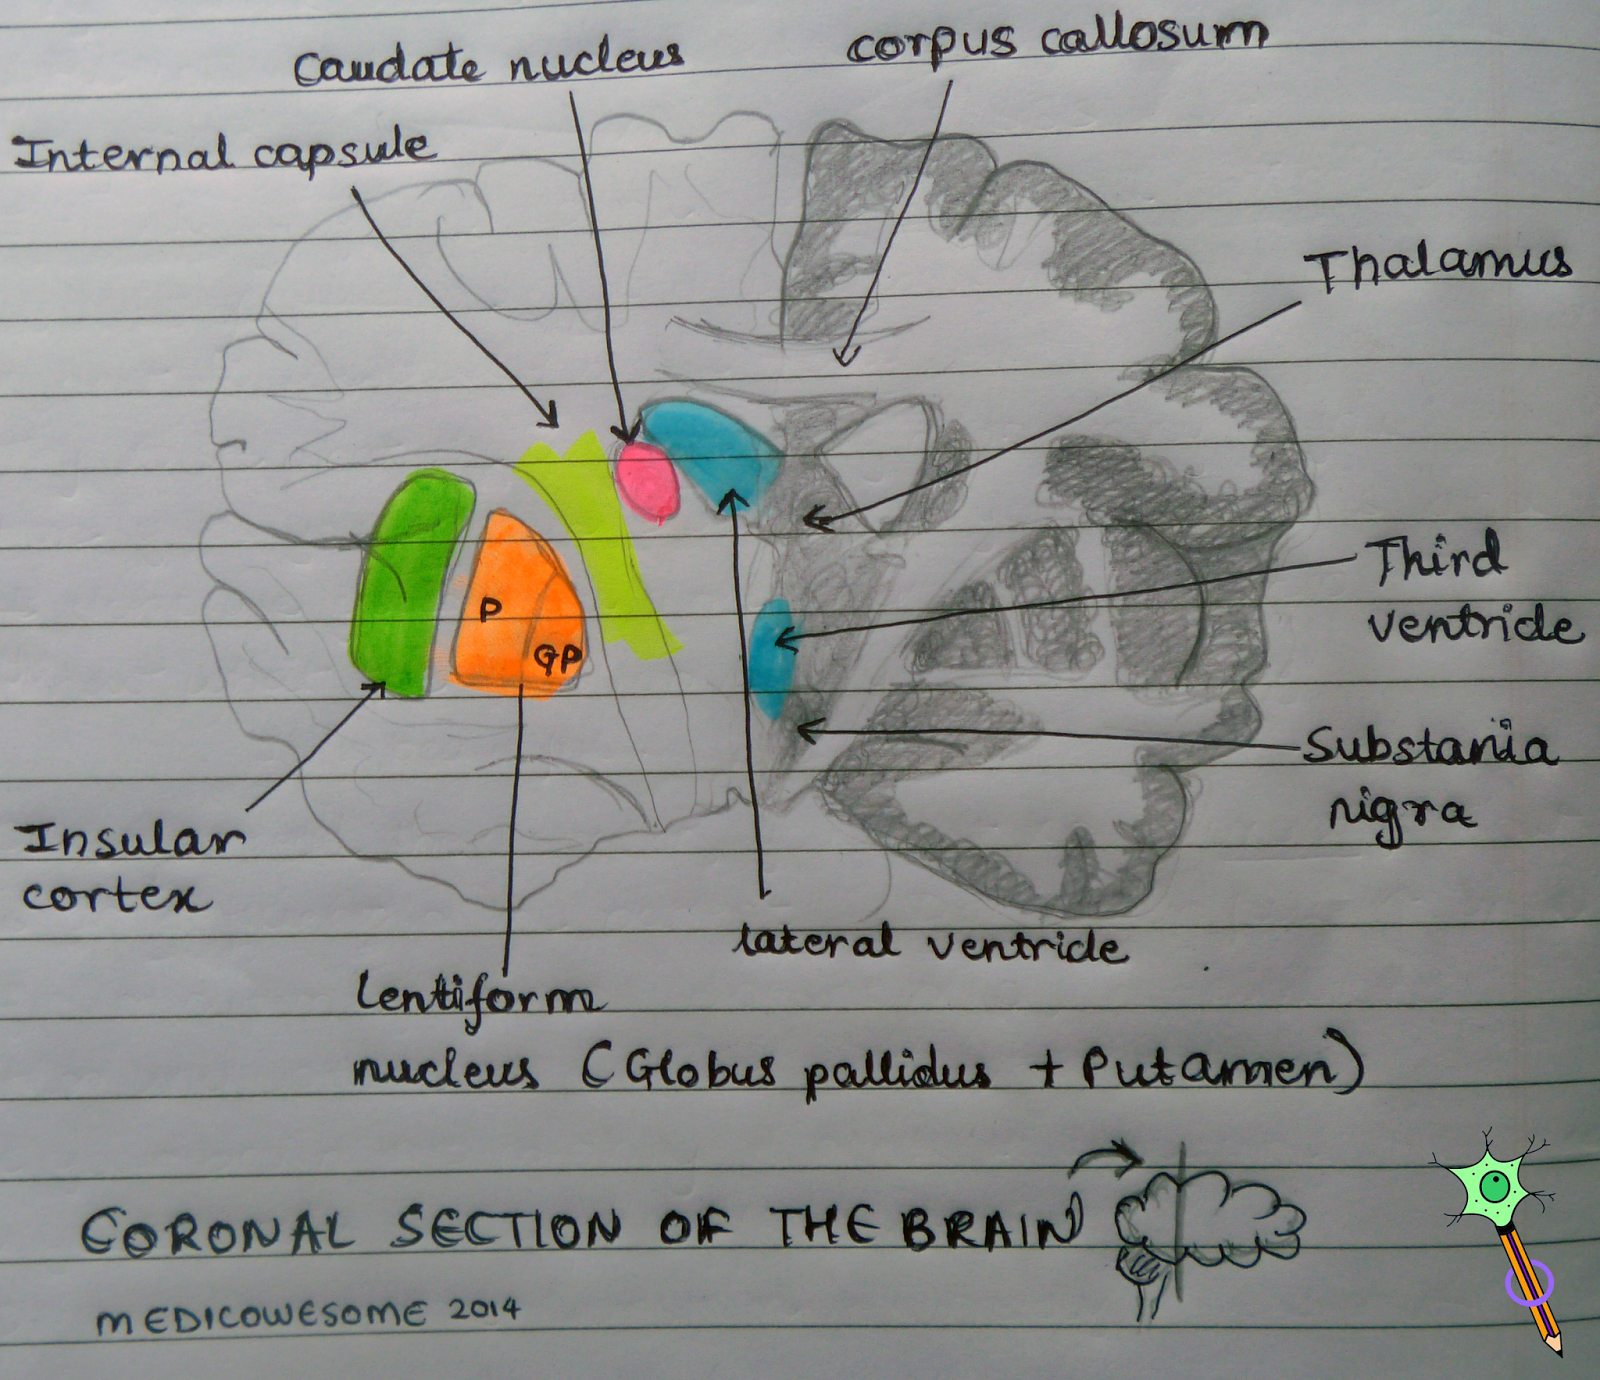 Caudate nucleus
corpus callosum
Internal capsule
Thalamus
Third
ventricle
P
GP
Substania
nigra
Insular
cortex
lateral ventricle
lentiform
nucleus (Globus pallidus + Putamen)
CORONAL SECTION OF THE BRAIN
MEDICOWESOME 2014